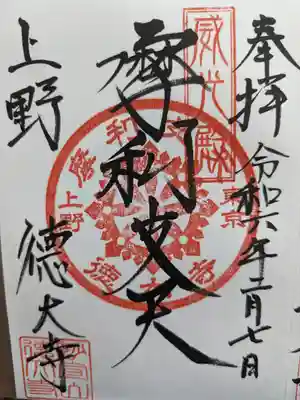 奉拝
令和六年二月七日
威光殿
摩利支天
摩利支天
東京
上野
徳大寺
上野
徳大寺